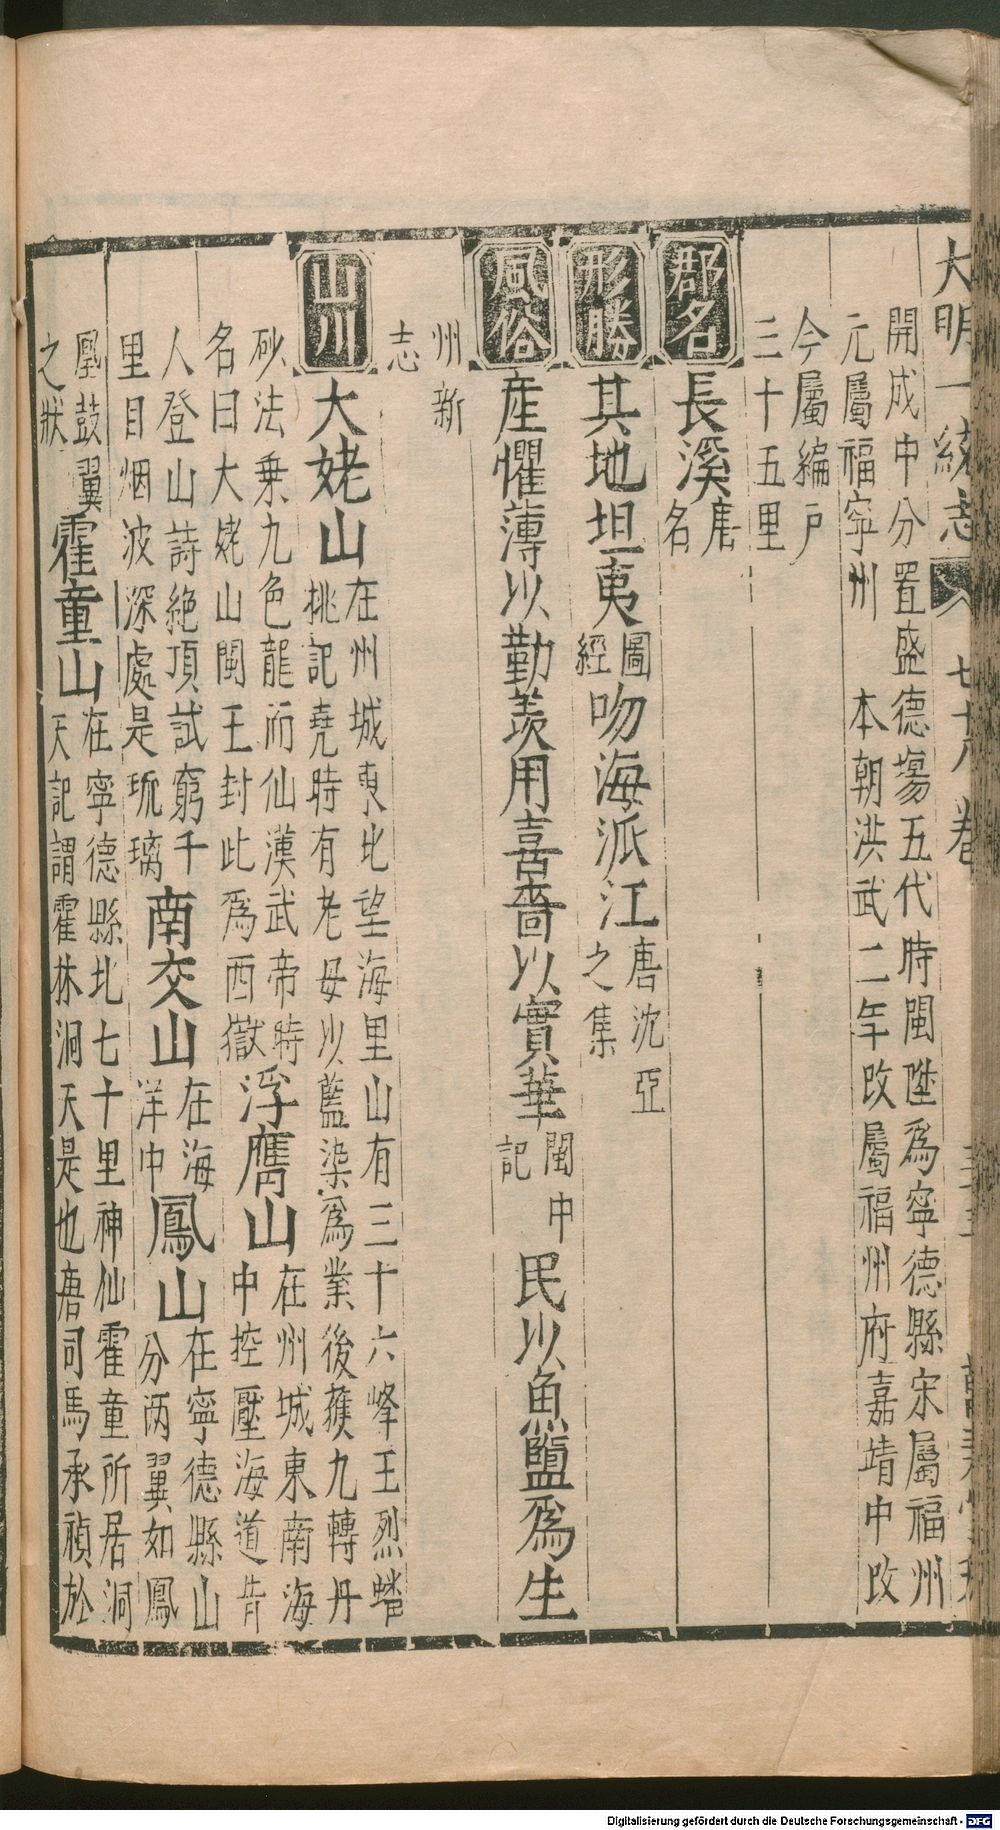 大明一統志 七十八卷
開成中分置盛德場五代時閩陞爲寧德縣宋屬福州
元屬福寧州 本朝洪武二年改屬福州府嘉靖中改
今屬編户
三十五里
郡名 長溪唐名
形勝 其地坦夷圖經吻海派江唐沈亞之集
風俗 產懼薄以勤羨用喜嗇以實華閩中記民以魚鹽爲生
州新
志
山川 大姥山在州城東北望海里山有三十六峰王烈蟠
桃記堯時有老母以藍染爲業後穫九轉丹
砂法乗九色龍而仙漢武帝時
名曰大姥山閩王封此爲西嶽浮膺山在州城東南海
中控壓海道昔
人登山詩絶頂試窮千
里目烟波深處是琉璃南交山在海
洋中鳳山在寧德縣山
分两翼如鳳
凰鼓翼
之狀霍童山在寧德縣北七十里神仙霍童所居洞
天記謂霍林洞天是也唐司馬承禎於
Digitalisierung gefördert durch die Deutsche Forschungsgemeinschaft - DFG